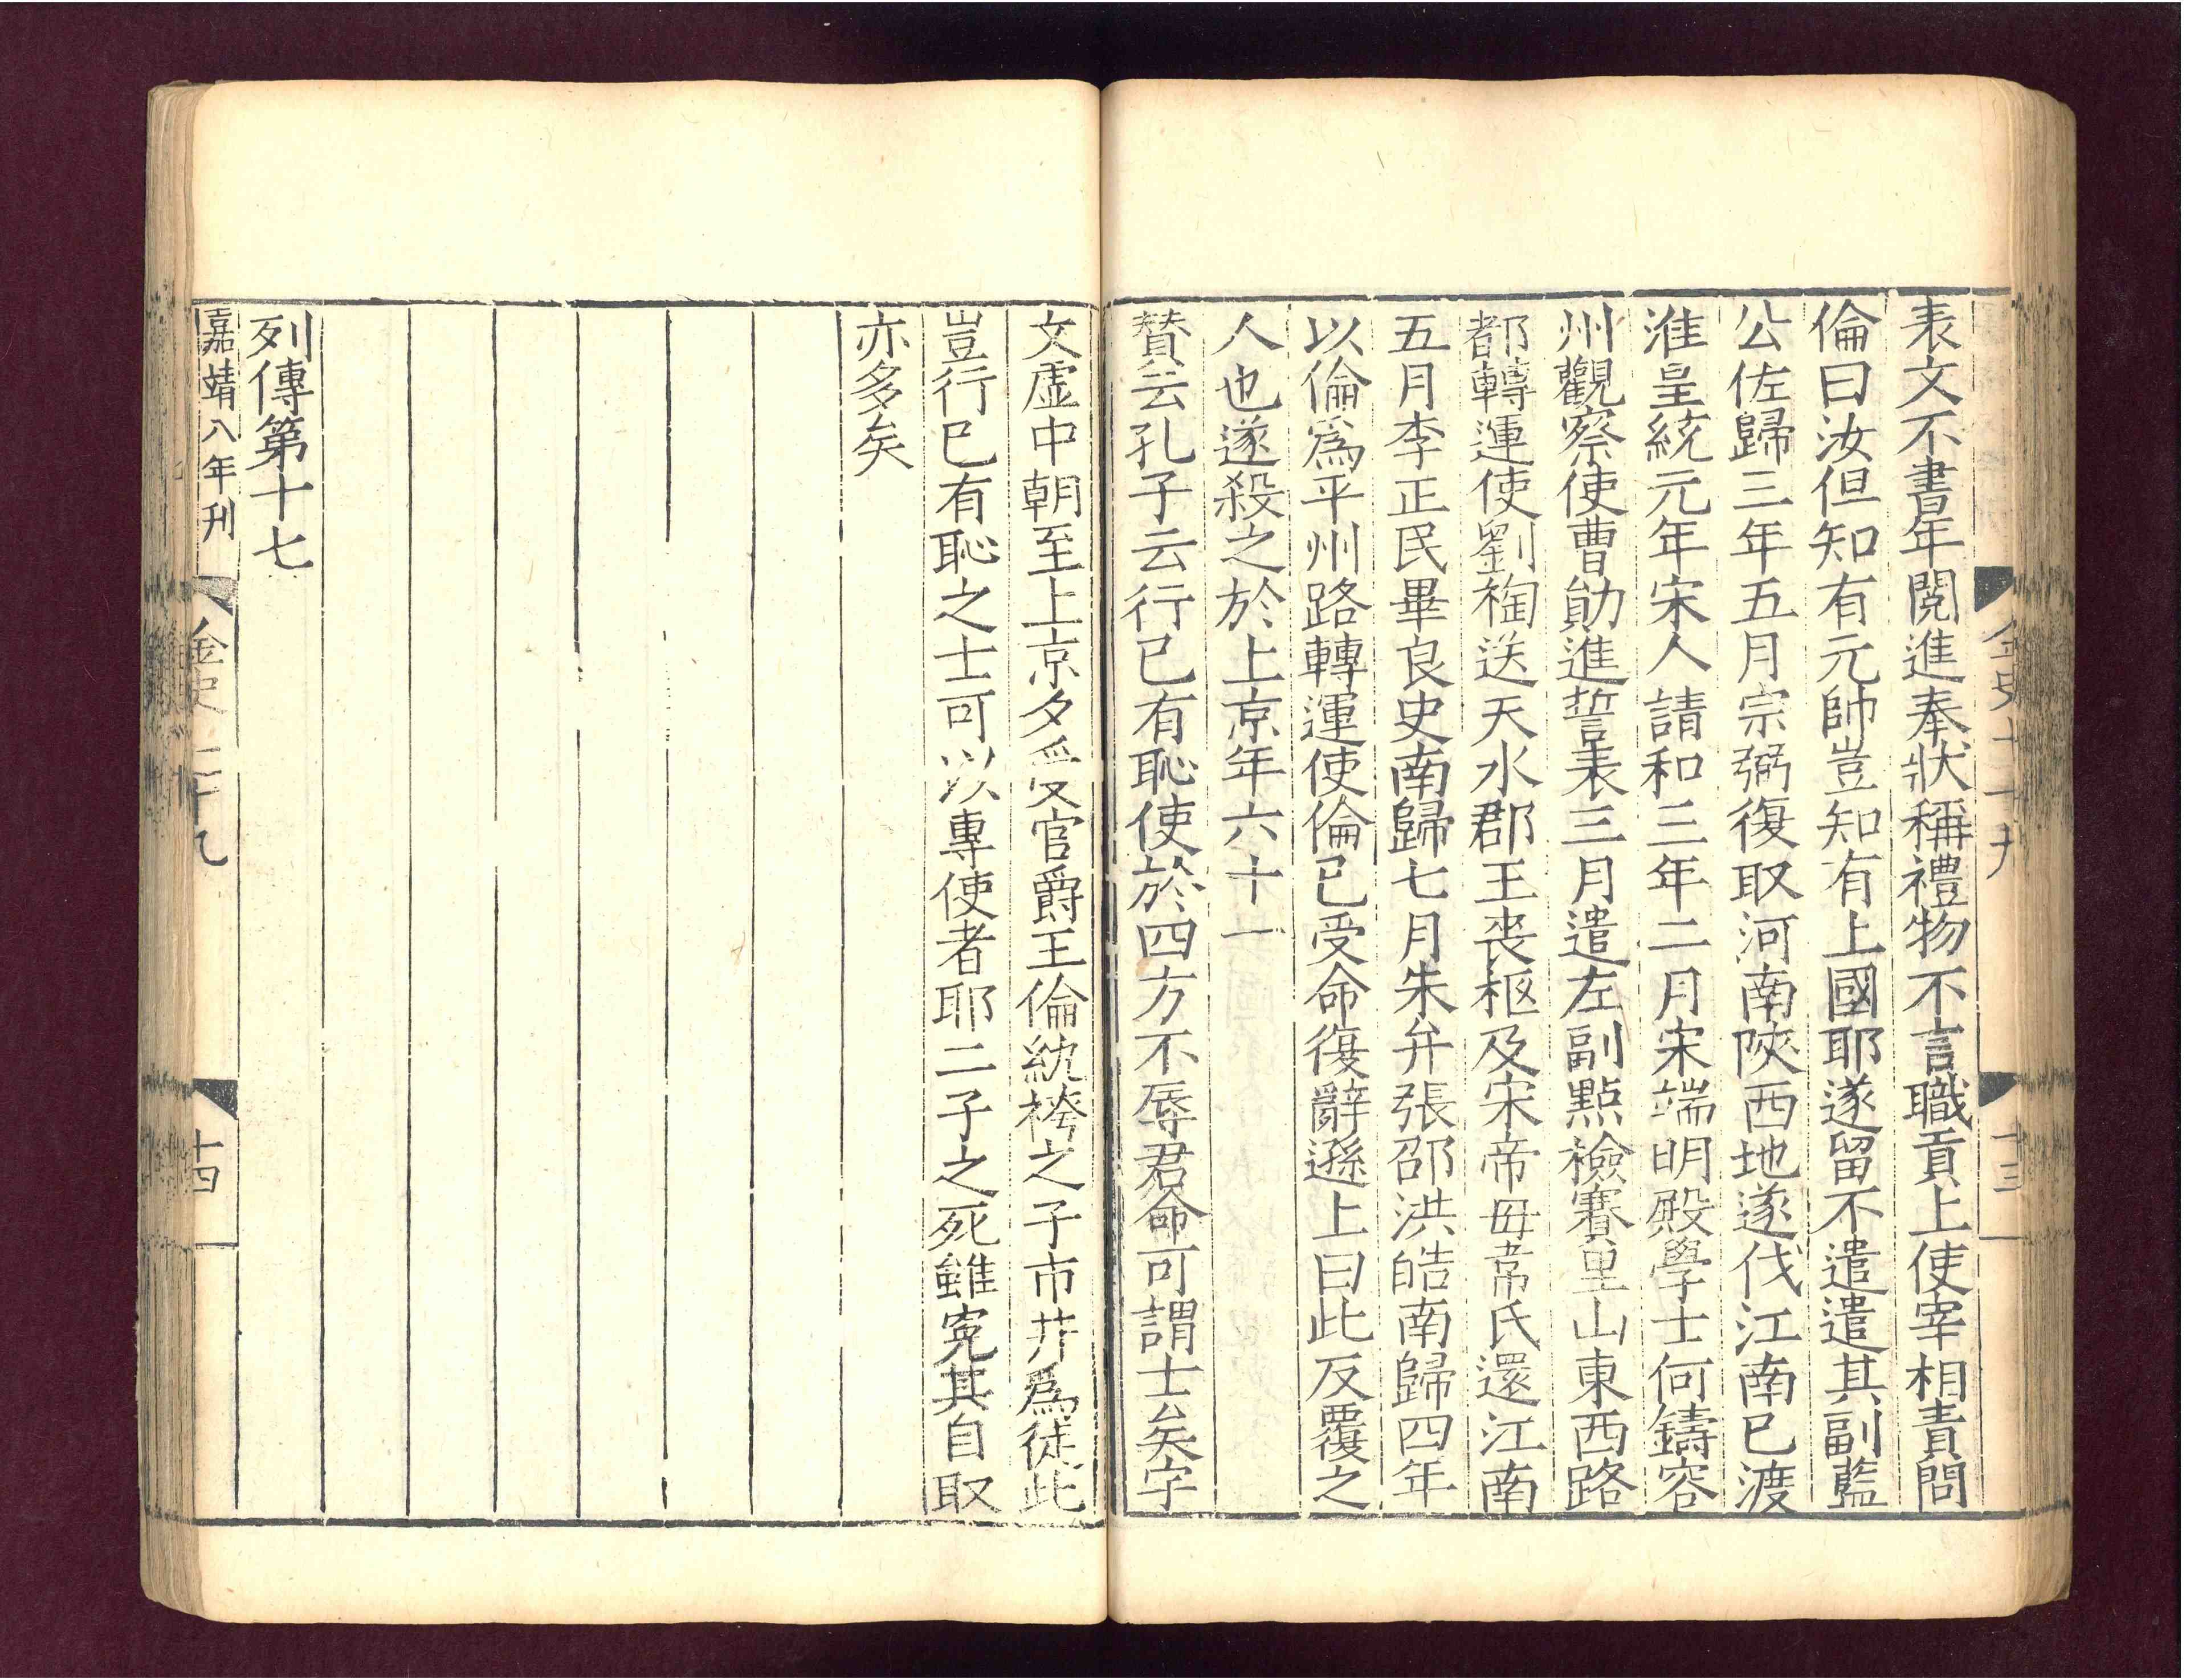 金史七十九
十三
表文不書年閱進奉狀稱禮物不言職貢上使宰相責問
倫曰汝但知有元帥豈知有上國耶遂留不遣遣其副藍
公佐歸三年五月宗弼復取河南陝西地遂伐江南已渡
淮皇統元年宋人請和三年二月宋端明殿學士何鑄容
州觀察使曹勛進誓表三月遣左副點檢賽里山東西路
都轉運使劉裪送天水郡王喪柩及宋帝母韋氏還江南
五月李正民畢良史南歸七月朱弁張邵洪皓南歸四年
以倫爲平州路轉運使倫已受命復辭遜上曰此反覆之
人也遂殺之於上京年六十一
贊云孔子云行已有恥使於四方不辱君命可謂士矣字
文虛中朝至上京夕受官爵王倫紈袴之子市井爲徒此
豈行已有恥之士可以專使者耶二子之死雖寃其自取
亦多矣
列傳第十七
嘉靖八年刊
金史七十九
十四